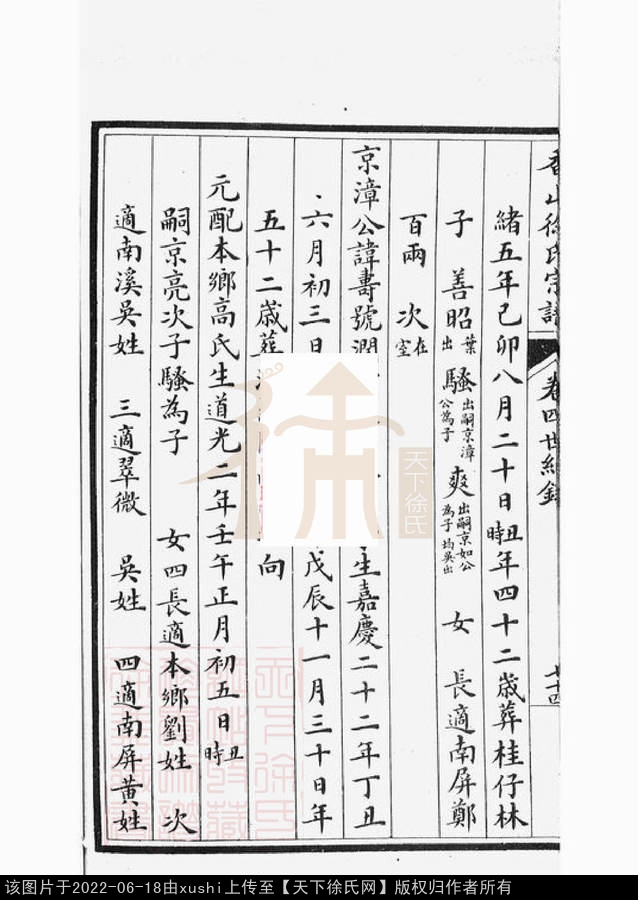 香山徐氏宗譜 卷四世紀錄 七十四
緒五年己卯八月二十日丑時年四十二歲葬桂仔林
子 善昭葉出 騷出嗣京漳公為子 爽出嗣京如公為子均吳出 女 長適南屏鄭
百兩 次在室
京漳公諱壽號潤 生嘉慶二十二年丁丑
六月初三日 戊辰十一月三十日年
五十二歲葬 向
元配本鄉高氏生道光二年壬午正月初五日丑時
嗣京亮次子騷為子 女四長適本鄉劉姓 次
適南溪吳姓 三適翠微 吳姓 四適南屏黃姓
徐
天下徐氏
该图片于2022-06-18由xushi上传至【天下徐氏网】版权归作者所有